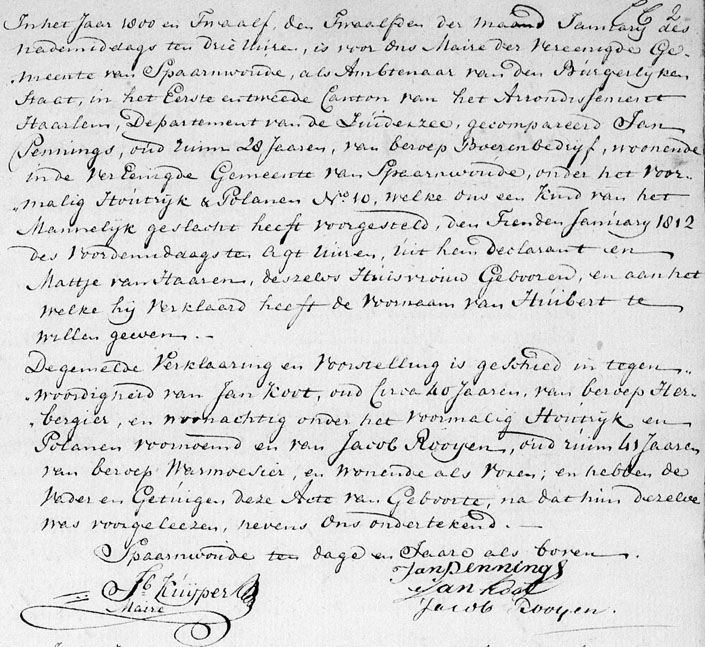 LC 2
In het Jaar 1800 en Twaalf, den Twaalfden der maand Januarij des
nademiddags ten drie Uuren, is voor Ons Maire der Vereenigde Ge-
meente van Spaarnwoude, als Ambtenaar van den Burgerlijken
Staat, in het Eerste en tweede Canton van het Arrondissement
Haarlem, Departement van de Zuiderzee, gecompareerd Jan
Pennings, oud ruim 28 Jaaren, van beroep Boerenbedrijf, woonende
in de Vereenigde Gemeente van Spaarnwoude, onder het Voor-
"malig Houtrijk & Polanen No. 10, welke ons een Kind van het
Mannelijk geslacht heeft voorgesteld, den Tienden January 1812
des Voordemiddags ten Agt Uuren, Uit hem declarant en
Mattje van Haaren, deszelvs Huisvrouw Gebooren, en aan het
welke hij Verklaard heeft de Voornaam van Huibert te
willen geeven. —
De gemelde Verklaaring en Voorstelling is geschied in tegen-
"woordigheid van Jan Koot, oud Circa 40 Jaaren, van beroep Her-
bergier, en woonachtig onder het voormalig Houtrijk en
Polanen voornoemd en van Jacob Rooyen, oud ruim 41 Jaaren
van beroep Warmoesier, en wonende als Voren; en hebben de
Vader en Getuigen deze Acte van Geboorte, na dat hun dezelve
was voorgeleezen, nevens Ons ondertekend. —
Spaarnwoude ten dage en Jaare als boven.
Jan Pennings
Jb Kuijper
Jan Koot
Maire
Jacob Rooyen.